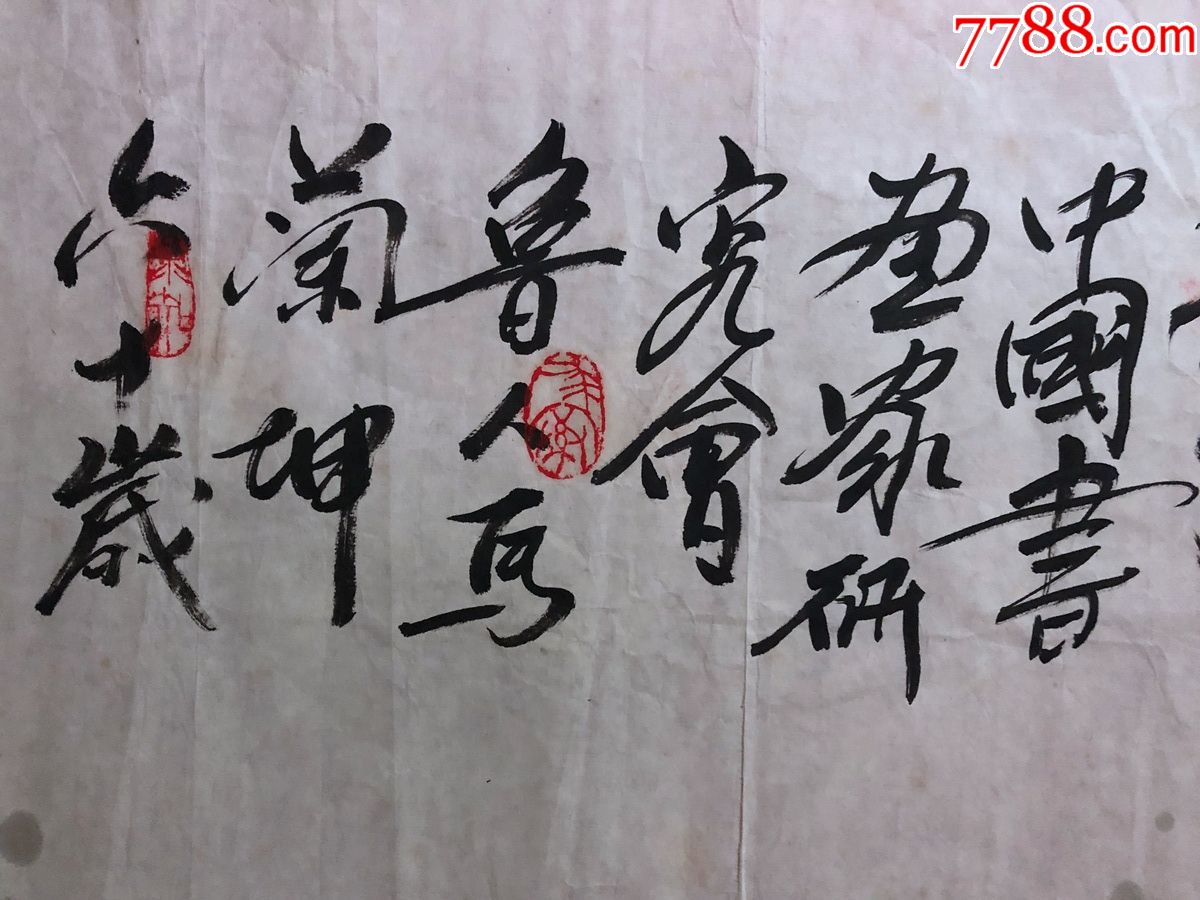 7788.com
中國書
画家研
究會
魯人馬
蘭坤
六十歲